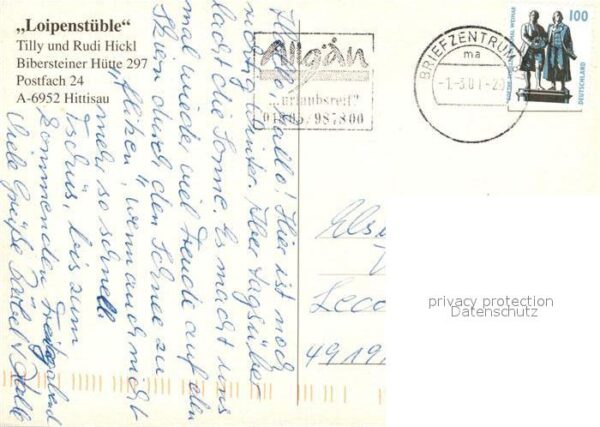 „Loipenstüble“
Tilly und Rudi Hickl
Bibersteiner Hütte 297
Postfach 24
A-6952 Hittisau
Allgäu
„...urlaubsreif“
01805/987800
BRIEFZENTRUM
ma
-1.-3.01.-20
100
DEUTSCHLAND
Hallo! Hier ist noch
richtig Winter. Aber tagsüber
lacht die Sonne. Es macht uns
mal wieder viel Freude auf den
Skiern durch den Schnee zu
„flitzen“, wenn auch nicht
mehr so schnell.
Tschüs, bis zum
kommenden Freitag
Viele Grüße Bärbel
4919
privacy protection
Datenschutz